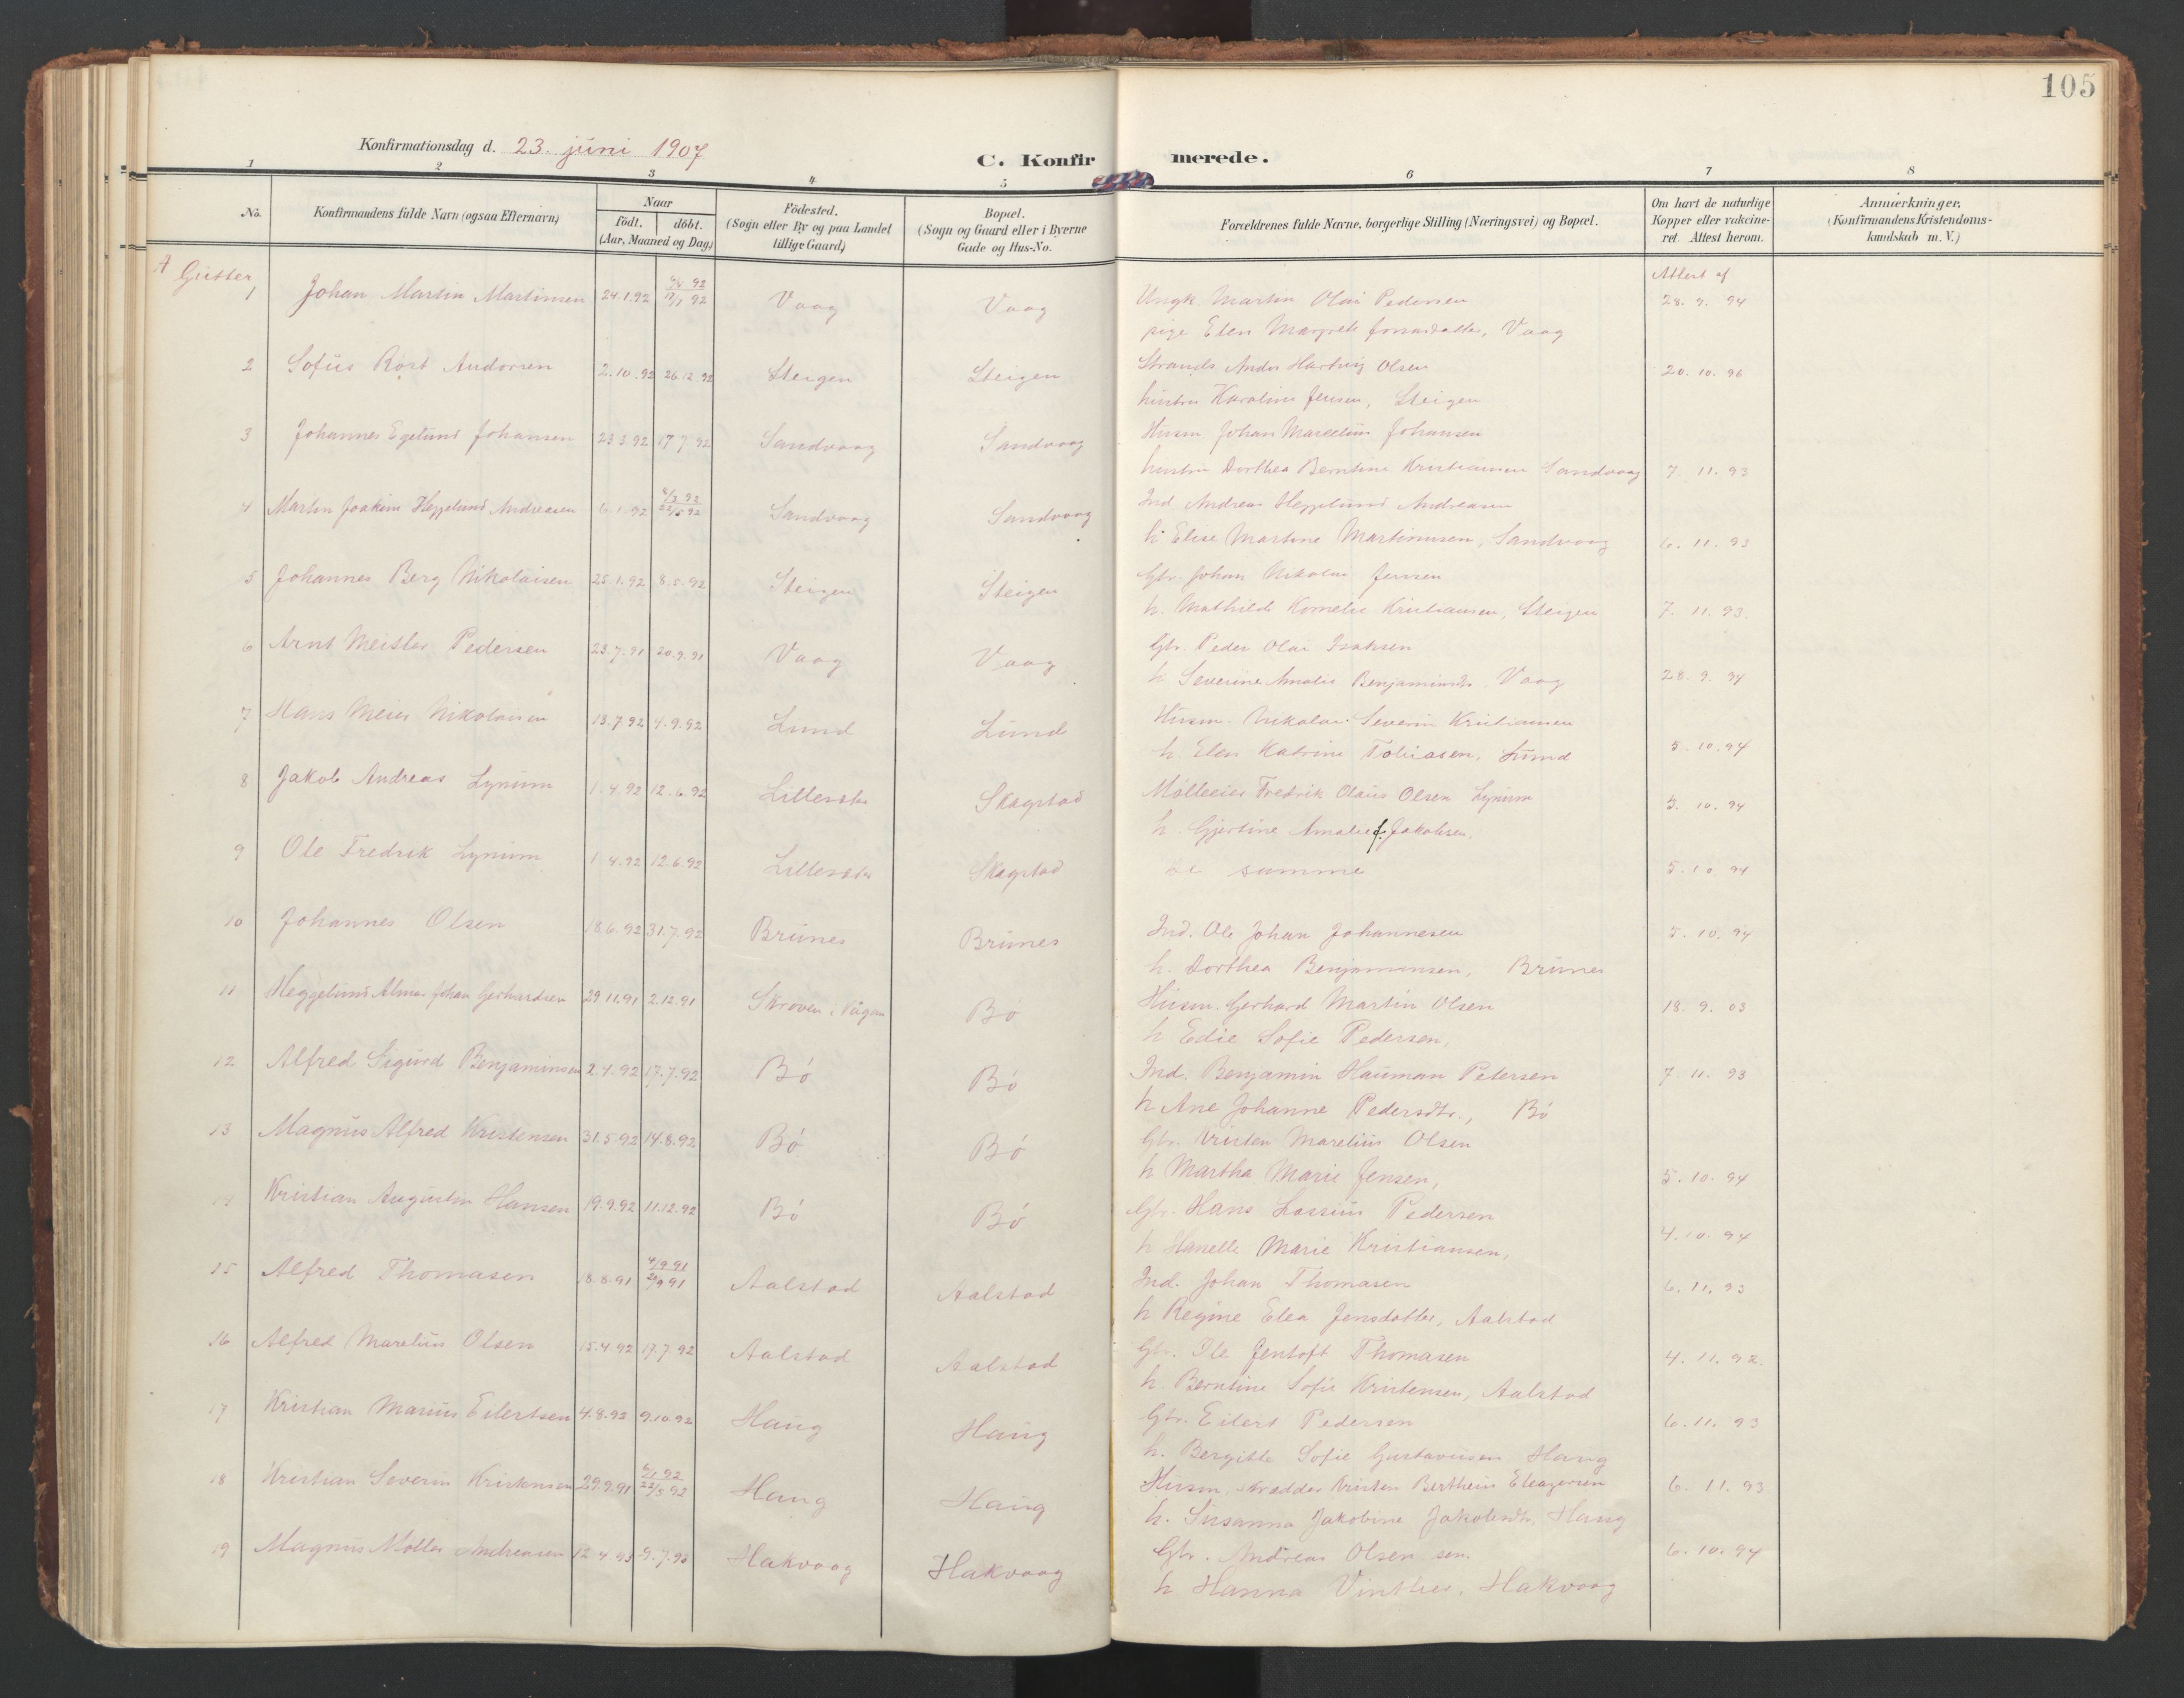 105
Konfirmationsdag d. 23. juni 1907
C. Konfirmerede.
1 2 3 4 5 6 7 8
No. Konfirmandens fulde Navn (ogsaa Efternavn) Naar födt. döbt. (Aar, Maaned og Dag) Födested. (Sogn eller By og paa Landet tillige Gaard) Bopæl. (Sogn og Gaard eller i Byerne Gade og Hus-No. Forældrenes fulde Navne, borgerlige Stilling (Næringsvei) og Bopæl. Om havt de naturlige Kopper eller vakcineret. Attest herom. Anmærkninger. (Konfirmandens Kristendomskundskab m. V.)
A Gutter
Attest af
1 Johan Martin Martinsen 24.1.92 17/7 92 Vaag Vaag Ungk. Martin Olai Pedersen 28. 9. 94
pige Elen Margrete, Vaag
2 Sofus Rost Andorsen 2.10.92 26.12.92 Steigen Steigen Strands. Andor Hartvig Olsen 20. 10. 96
hustru Karoline Jensen, Steigen
3 Johannes Egelund Johansen 23.3.92 17.7.92 Sandvaag Sandvaag Husm. Johan Marselius Johansen
hustru Dorthea Berntine Kristiansen Sandvaag 7. 11. 93
4 Martin Joakim Heggelund Andreasen 6.1.92 22/5 92 Sandvaag Sandvaag Ind. Andreas Heggelund Andreasen
h. Elise Martine Martinusen, Sandvaag 6. 11. 93
5 Johannes Berg Nikolaisen 25.1.92 8.5.92 Steigen Steigen Gbr. Johan Nikolai Jensen
h. Mathilde Kornelie Kristiansen, Steigen 7. 11. 93.
6 Arnt Meisler Pedersen 23.7.91 20.9.91 Vaag Vaag Gbr. Peder Olai Isaksen
h. Severine Amalie Benjaminsdr. Vaag 28. 9. 94
7 Hans Meier Nikolaisen 13.7.92 4.9.92 Lund Lund Husm. Nikolai Severin Kristiansen
h. Elen Katrine Tobiasen, Lund 5. 10. 94
8 Jakob Andreas Lynum 1.4.92 12.6.92 Skagstad Mølleeier Fredrik Olaus Olsen Lynum 5. 10. 94
h. Gjertine Amalie f. Jakobsen.
9 Ole Fredrik Lynum 1.4.92 12.6.92 Skagstad de samme 5. 10. 94
10 Johannes Olsen 18.6.92 31.7.92 Brunes Brunes Ind. Ole Johan Johannesen 5. 10. 94
h. Dorthea Benjaminsen, Brunes
11 Heggelund Almar Johan Gerhardsen 29.11.91 2.12.91 Skroven i Vågan Bø Husm. Gerhard Martin Olsen 18. 9. 03
h Edie Sofie Pedersen,
12 Alfred Sigurd Benjaminsen 2.4.92 17.7.92 Bø Bø Ind. Benjamin Hauman Petersen 7. 11. 93
h Ane Johanne Pedersdtr., Bø
13 Magnus Alfred Kristensen 31.5.92 14.8.92 Bø Bø Gbr. Kristen Marelius Olsen
h Martha Marie Jensen, 5. 10. 94
14 Kristian Augustin Hansen 19.9.92 11.12.92 Bø Bø Gbr. Hans Lassius Pedersen
h Hanelle Marie Kristiansen, 4. 10. 94
15 Alfred Thomasen 18.8.91 4/9 91 20/9 91 Aalstad Aalstad Ind. Johan Thomasen 6. 11. 93
h Regine Elea Jensdatter, Aalstad
16 Alfred Marelius Olsen 15.4.92 17.7.92 Aalstad Aalstad Gbr. Ole Jentoft Thomasen 4. 11. 92.
h. Berntine Sofie Kristensen, Aalstad
17 Kristian Marius Eilertsen 4.8.92 9.10.92 Haug Haug Gbr. Eilert Pedersen 6. 11. 93
h. Bergitte Sofie Gustavusen Haug
18 Kristian Severin Kristensen 29.9.91 6/1 92 22/5 92 Haug Haug Husm. skrædder Kristen Bertheus Eleazersen 6. 11. 93
h. Susanna Jakobine Jakobsdtr, Haug
19 Magnus Møller Andreasen 12.4.93 9.7.93 Hakvaag Hakvaag Gbr. Andreas Olsen sen. 6. 10. 94
h Hanna Vinther, Hakvaag